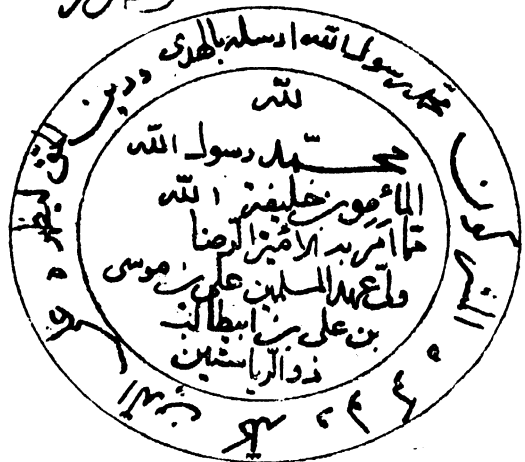 محمد رسول الله ارسله بالهدى ودين الحق ليظهره على الدين كله ولو كره المشركون
لله
محمد رسول الله
المأمون خليفة الله
مما أمر به الأمير الرضا
ولي عهد المسلمين علي بن موسى
بن علي بن ابيطالب
ذو الرياستين